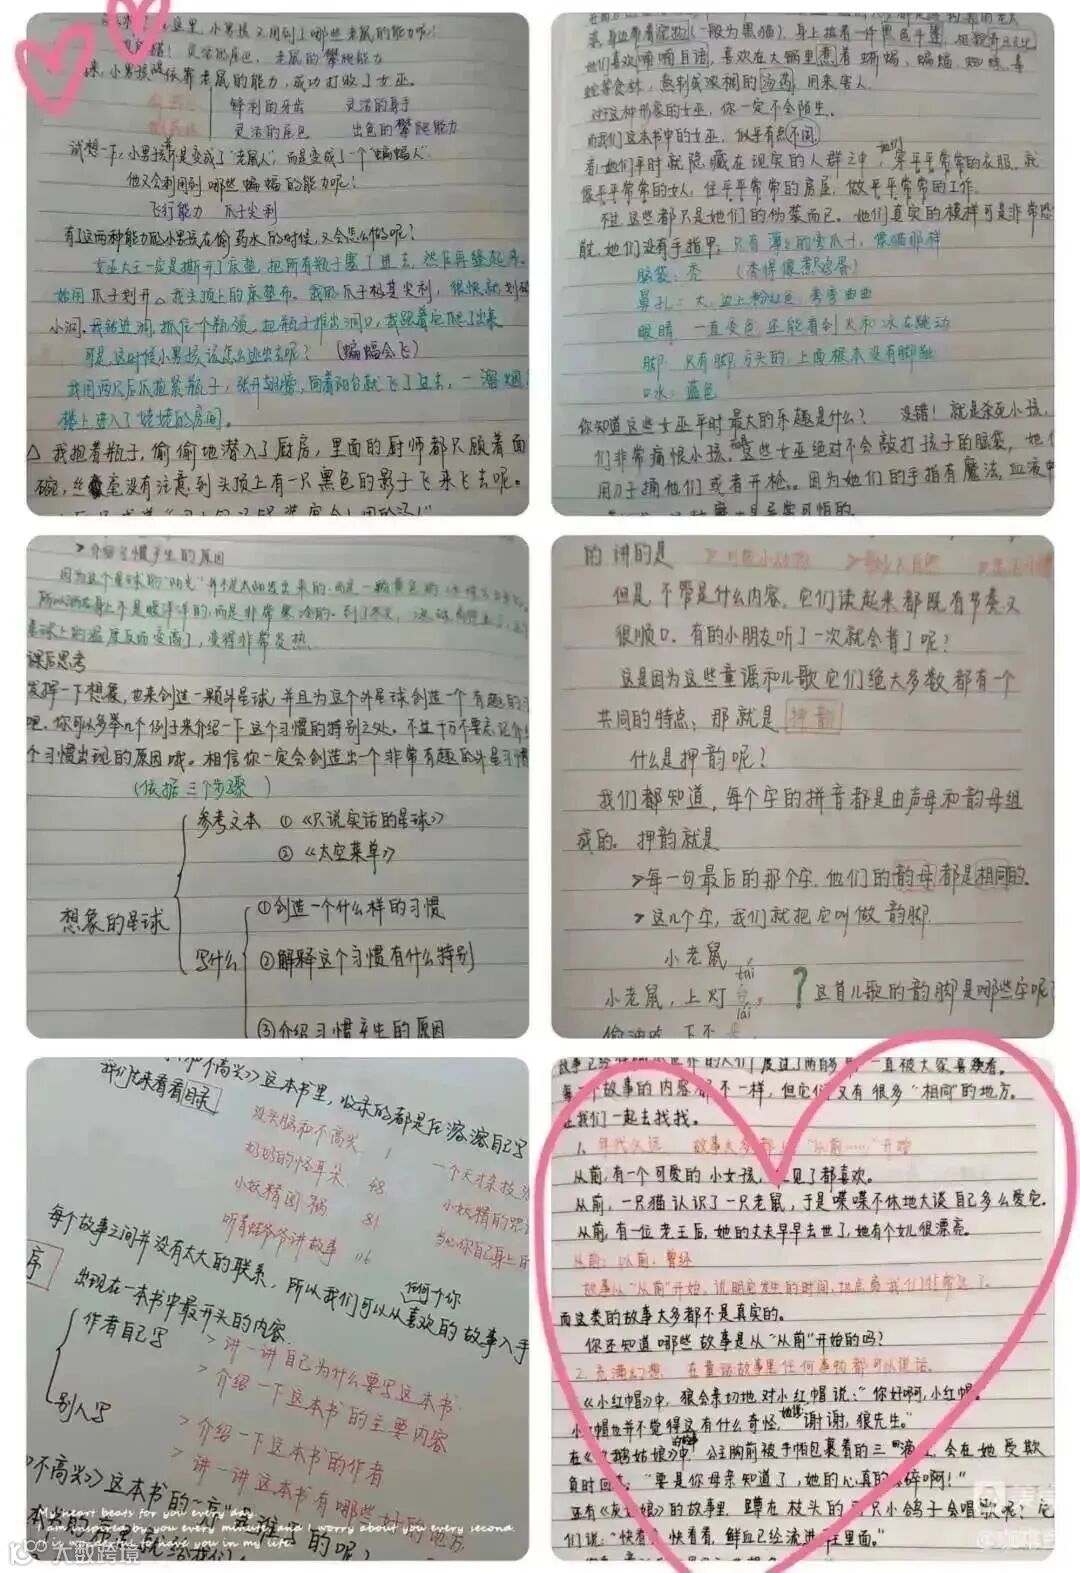 这里,小男孩又用到了哪些老鼠的能力呢?
灵活的尾巴,老鼠的攀爬能力
小男孩依靠老鼠的能力,成功打败了女巫。
锋利的牙齿 灵活的身手
灵活的尾巴 出色的攀爬能力
试想一下,小男孩若不是变成了"老鼠人",而是变成了一个"蝙蝠人"
他又会利用到哪些蝙蝠的能力呢?
飞行能力 爪子尖利
有了这两种能力的小男孩在偷药水的时候,又会怎么做呢?
女巫大王一定是撕开了床垫,把所有瓶子塞了进去,然后再缝起来。
用爪子划开 我头顶上的床垫布。我的爪子极其尖利,很快就划破
小洞。我钻进洞,抓住一个瓶颈,把瓶子推出洞口,我跟着它爬了出来
可是,这时候小男孩该怎么逃出去呢?(蝙蝠会飞)
我用两只后爪抱紧瓶子,张开翅膀,向着阳台就飞了过去,一溜烟
楼上进入了姥姥的房间。
△我抱着瓶子,偷偷地潜入了厨房,里面的厨师都只顾着面
碗,丝毫没有注意到头顶上有一只黑色的影子飞来飞去呢。
身边带着宠物(一般为黑猫),身上披着一件黑色斗篷,
她们喜欢喃喃自语,喜欢在大锅里煮着蜥蜴、蝙蝠、蜘蛛、毒
蛇等食材,熬制成浓稠的汤药,用来害人。
对于这种形象的女巫,你一定不会陌生。
而我们这本书中的女巫,似乎有点不同
看,她们平时就隐藏在现实的人群之中,她们穿平平常常的衣服,就
像平平常常的女人,住平平常常的房屋,做平平常常的工作。
不过这些都只是她们的伪装而已。她们真实的模样可是非常恐
她们没有手指甲,只有薄薄的弯爪子,像猫那样
脑袋:秃 (秃得像煮鸡蛋)
鼻孔:大,边上粉红色,弯弯曲曲
眼睛:一直变色,还能看到火和冰在跳动
脚:只有脚,方头的,上面根本没有脚趾
口水:蓝色
你知道这些女巫平时最大的乐趣是什么? 没错!就是杀死小孩,
们非常痛恨小孩。这些女巫绝对不会敲打孩子的脑袋,她们
用刀子捅他们或者开枪。因为她们的手指有魔法,血液中
>介绍习惯产生的原因
因为这个星球的"阳光"并不是太阳发出来的,而是一颗黄色的
所以洒在身上不是暖洋洋的,而是非常寒冷的。到了冬天,
星球上的温度反而变高了,变得非常炎热
课后思考
发挥一下想象,也来创造一颗外星球,并且为这个外星球创造一个有趣的习
吧。你可以多举几个例子来介绍一下这个习惯的特别之处。不过千万不要忘记介绍
个习惯出现的原因哦。相信你一定会创造出一个非常有趣的外星习惯
(依据三个步骤)
参考文本 ①《只说实话的星球》
②《太空菜单》
想象的星球
①创造一个什么样的习惯
写什么 ②解释这个习惯有什么特别
③介绍习惯产生的原因
的 讲的是
但是不管是什么内容,它们读起来都既有节奏又
很顺口。有的小朋友听了一次就会背了呢?
这是因为这些童谣和儿歌它们绝大多数都有一个
共同的特点,那就是押韵
什么是押韵呢?
我们都知道,每个字的拼音都是由声母和韵母组
成的。押韵就是
>每一句最后的那个字,他们的韵母都是相同的。
>这几个字,我们就把它叫做韵脚
小老鼠
tái
小老鼠,上灯台, ?这首儿歌的韵脚是哪些字呢?
lái
偷油吃,下不来
和不高兴》这本书里,收录的都是任溶溶自己写
我们先来看看目录
没头脑和不高兴 1
奶奶的怪耳朵 48
小妖精闯祸 81
听青蛙爷爷讲故事 116
每个故事之间并没有太大的联系,所以我们可以从任何一个你喜欢的故事入手
序 出现在一本书中最开头的内容
作者自己写
>讲一讲自己为什么要写这本书
>介绍一下这本书的主要内容
别人写
>介绍一下这本书的作者
>讲一讲这本书有哪些好的地方
不高兴》这本书的"序"是谁写的呢?
My heart beats for you every day.
I am inspired by you every minute, and I worry about you every second.
wonderful to have you in my life.
大数跨境
一直被大家喜欢着。
每一个故事的内容都不一样,但它们又有很多"相同"的地方。
让我们一起去找找。
1、年代久远 故事大多都以"从前……"开始
从前,有一个可爱的小女孩,见了都喜欢。
从前,一只猫认识了一只老鼠,于是喋喋不休地大谈自己多么爱它。
从前,有一位老王后,她的丈夫早早去世了,她有个女儿很漂亮。
从前:以前、曾经
故事以"从前"开始,说明它发生的时间、地点离我们非常远了。
而这类的故事大多都不是真实的。
你还知道哪些故事是从"从前"开始的吗?
2.充满幻想 在童话故事里任何事物都可以说话。
《小红帽》中,狼会亲切地对小红帽说:"你好啊,小红帽。
小红帽也并不觉得这有什么奇怪,她说:"谢谢,狼先生。"
在《牧鹅姑娘》的故事中,公主胸前被手帕包裹着的三滴血,会在她受欺
负时回答:"要是你母亲知道了,她的心真的会碎啊!"
还有《灰姑娘》的故事里,蹲在枝头的两只小鸽子会唱歌呢?它
们说:"快看,快看看,鲜血已经流进鞋里面。"